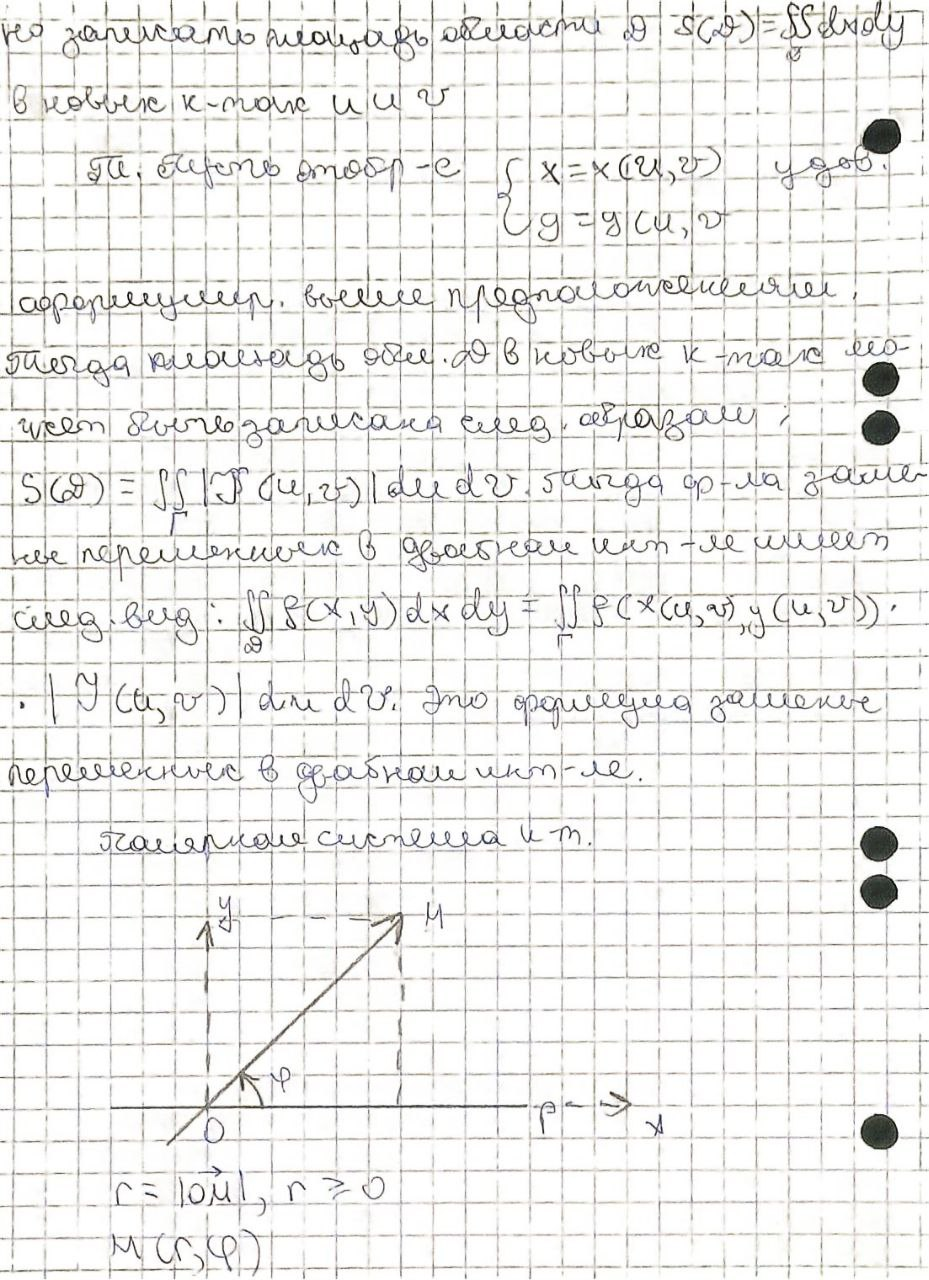 но записать площадь области D S(D) = ∬_D dxdy
в новых к-тах u и v
Т. Пусть отобр-е { x = x(u, v) удов.
y = y(u, v
сформулир. выше предположениям.
Тогда площадь обл. D в новых к-тах мо-
жет быть записана след. образом:
S(D) = ∬_Г |J(u, v)| du dv. Тогда ф-ла заме-
ны переменных в двойном инт-ле имеет
след. вид: ∬_D f(x, y) dx dy = ∬_Г f(x(u, v), y(u, v)) ·
· |J(u, v)| du dv. Это формула замены
переменных в двойном инт-ле.
Полярная система к-т.
y M
φ
O p x
r = |OM|, r ≥ 0
M(r, φ)